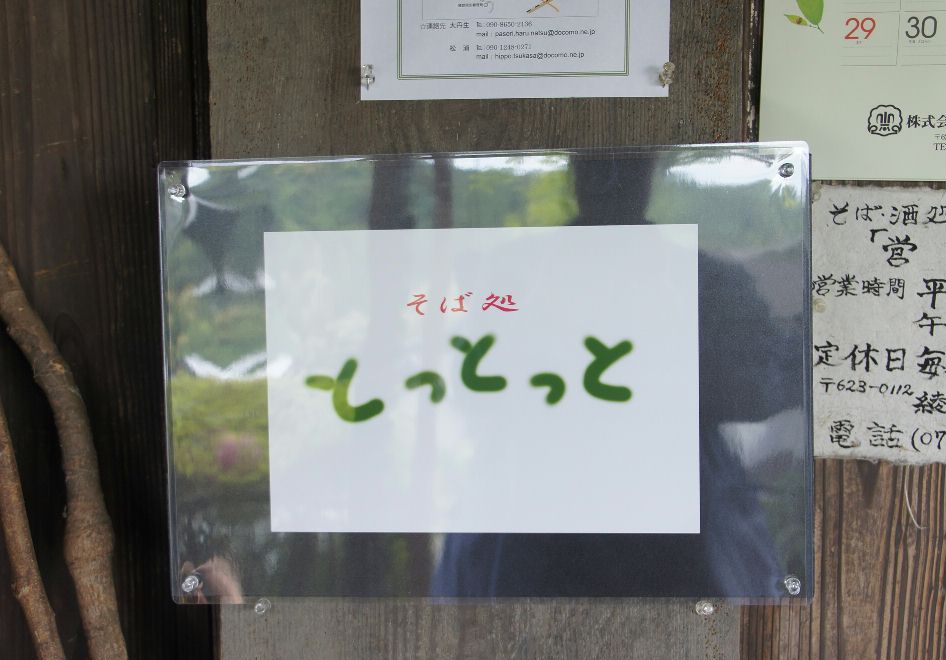 ☆連絡先 大丹生 ℡:090-8650-2136
mail : paseri.haru.natsu@docomo.ne.jp
松 浦 ℡:090-1248-0271
mail : hippo.tsukasa@docomo.ne.jp
29
30
株式会
TE
そば処
とっとっと
そば・酒処
「営
営業時間 平
午
定休日 毎
〒623-0112
綾
電話(07